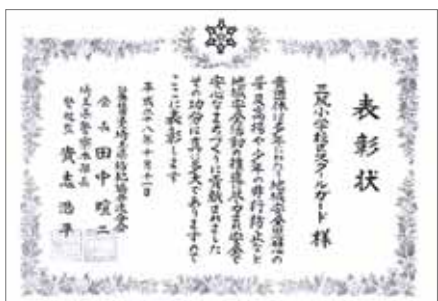 表彰状
三尻小学校区スクールガード 様
貴団体は多年にわたり地域安全思想の
普及高揚や少年の非行防止など
地域安全活動の推進に尽力され安全で
安心なまちづくりに貢献されました
その功労は真に多大でありますので
ここに表彰します
平成二十八年十月十一日
会長 田中暄二
埼玉県警察本部長
警視監 貴志浩平